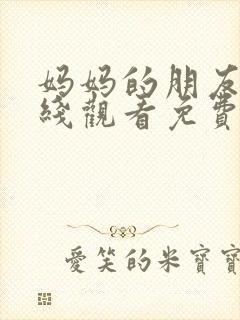 妈妈的朋友
綫觀看免費
愛笑的米寶寶